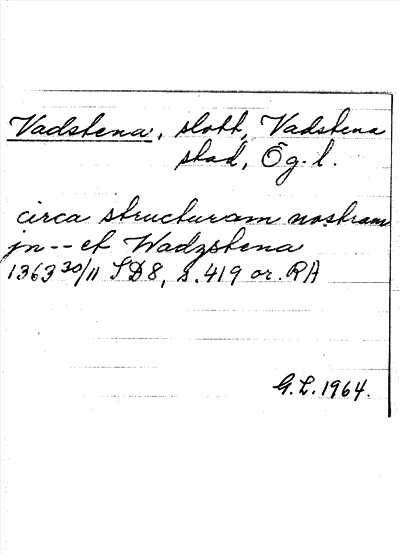 Vadstena, slott, Vadstena
stad, Ög. l.
circa structuram nostram
jn -- et Wadzstena
1363 30/11 SD8, s. 419 or. RA
G. L. 1964.